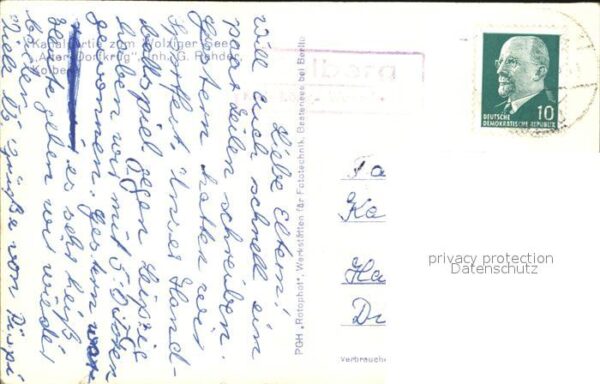 Kanalpartie zum Wolziger See
„Alter Dorfkrug", Inh. G. Rehder,
Liebe Eltern!
Will euch schnell ein
paar Zeilen schreiben.
Gestern hatten wir
Sportfest. Unser Hand-
ballspiel gegen Leipzig
haben wir mit 5
gewonnen. Gestern war
es sehr heiß
Heute gehen wir wieder
baden.
Viele Grüße von
PGH „Rotophot", Werkstätten für Fototechnik, Bestensee bei Berlin
Fa
Ka
Ha
Dr
Verbrauche
10
DEUTSCHE
DEMOKRATISCHE REPUBLIK
privacy protection
Datenschutz